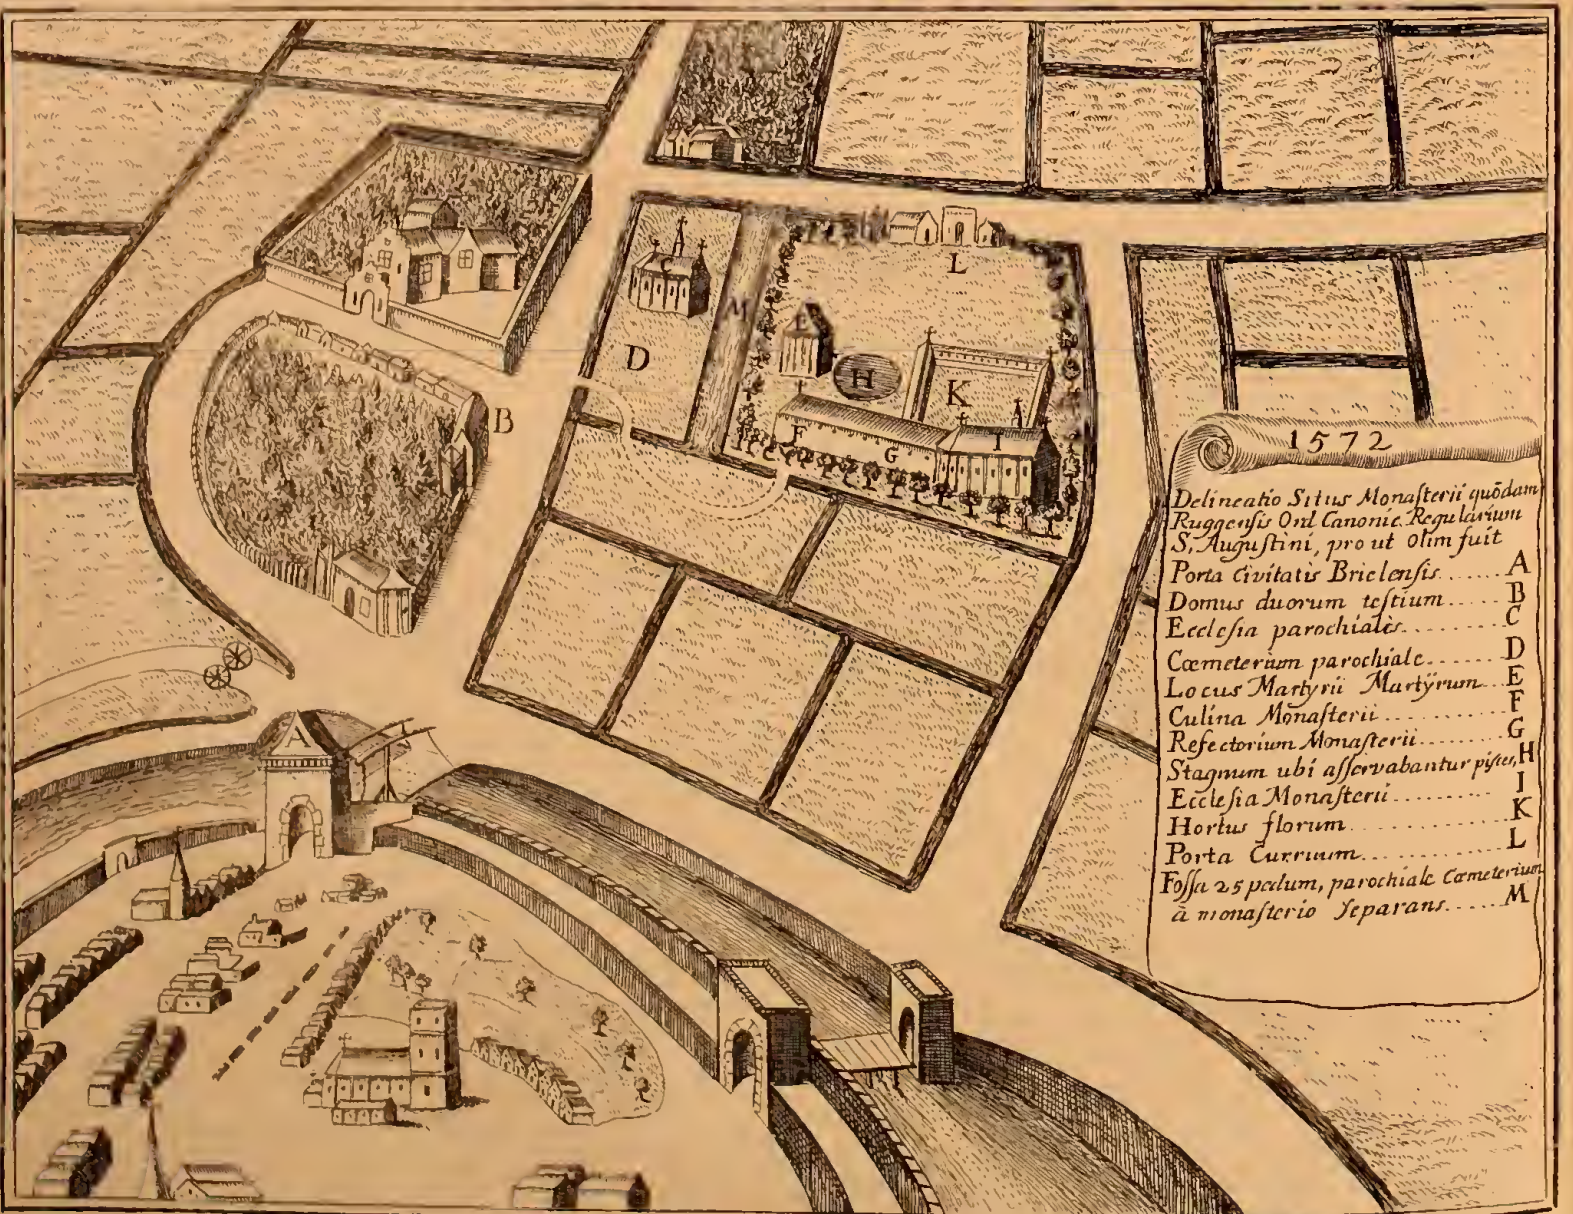 C
L
M
E
D
H
K
B
F
G
I
A
1572
Delineatio Situs Monaſterii quōdam
Ruggenſis Ord. Canonic. Regularium
S. Auguſtini, pro ut olim fuit
Porta Civitatis Brielenſis ...... A
Domus duorum teſtium ..... B
Eccleſia parochialis ......... C
Cœmeterium parochiale ....... D
Locus Martyrii Martÿrum ... E
Culina Monaſterii ........... F
Refectorium Monaſterii ........ G
Stagnum ubi aſſervabantur piſces, H
Eccleſia Monaſterii .......... I
Hortus florum ................ K
Porta Curruum ............... L
Foſſa 25 pedum, parochiale Cœmeterium
à monaſterio ſeparans ..... M